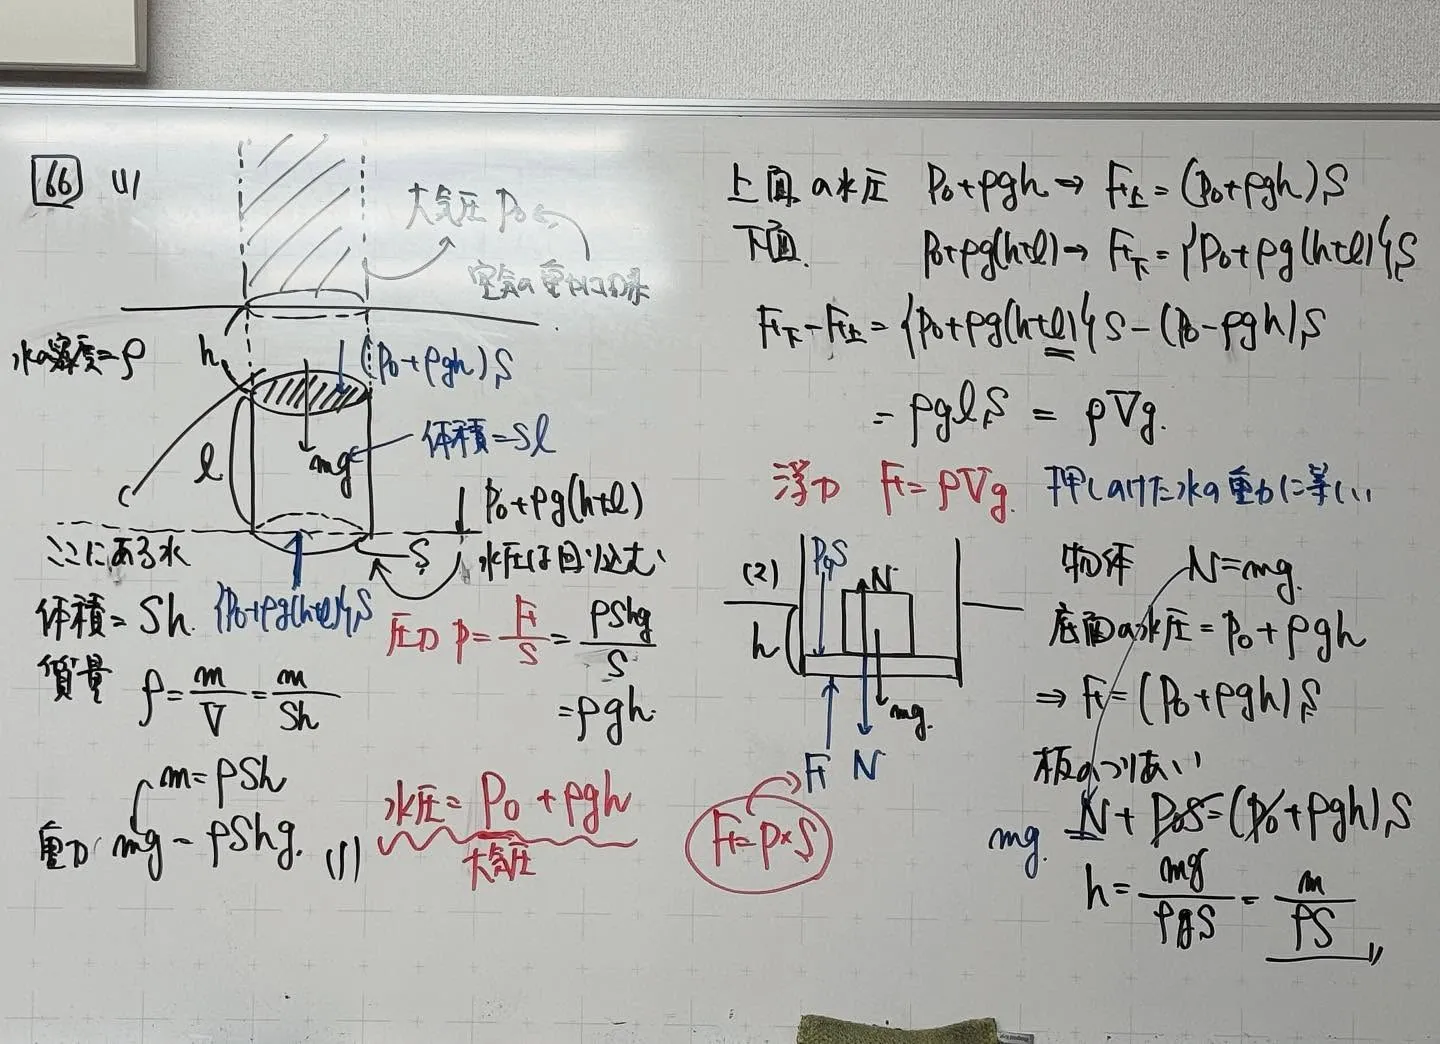 66 (1)
大気圧 P₀
空気の重力に由来
水の密度=ρ
h
(P₀+ρgh)S
体積=Sl
l
mg
P₀+ρg(h+l)
S
水圧は
ここにある水
体積=Sh
{P₀+ρg(h+l)}S
質量 ρ=m/V=m/Sh
m=ρSh
重力 mg=ρShg. (1)
圧力 P=F/S=ρShg/S
=ρgh.
水圧=P₀+ρgh
大気圧
上面の水圧 P₀+ρgh→F上=(P₀+ρgh)S
下面. P₀+ρg(h+l)→F下={P₀+ρg(h+l)}S
F下-F上={P₀+ρg(h+l)}S-(P₀-ρgh)S
=ρglS=ρVg.
浮力 F=ρVg. 押しのけた水の重力に等しい
(2)
P₀S
N
h
mg.
F N
F=P×S
物体 N=mg.
底面の水圧=P₀+ρgh
⇒F=(P₀+ρgh)S
板のつりあい
mg. N+P₀S=(P₀+ρgh)S
h=mg/ρgS=m/ρS